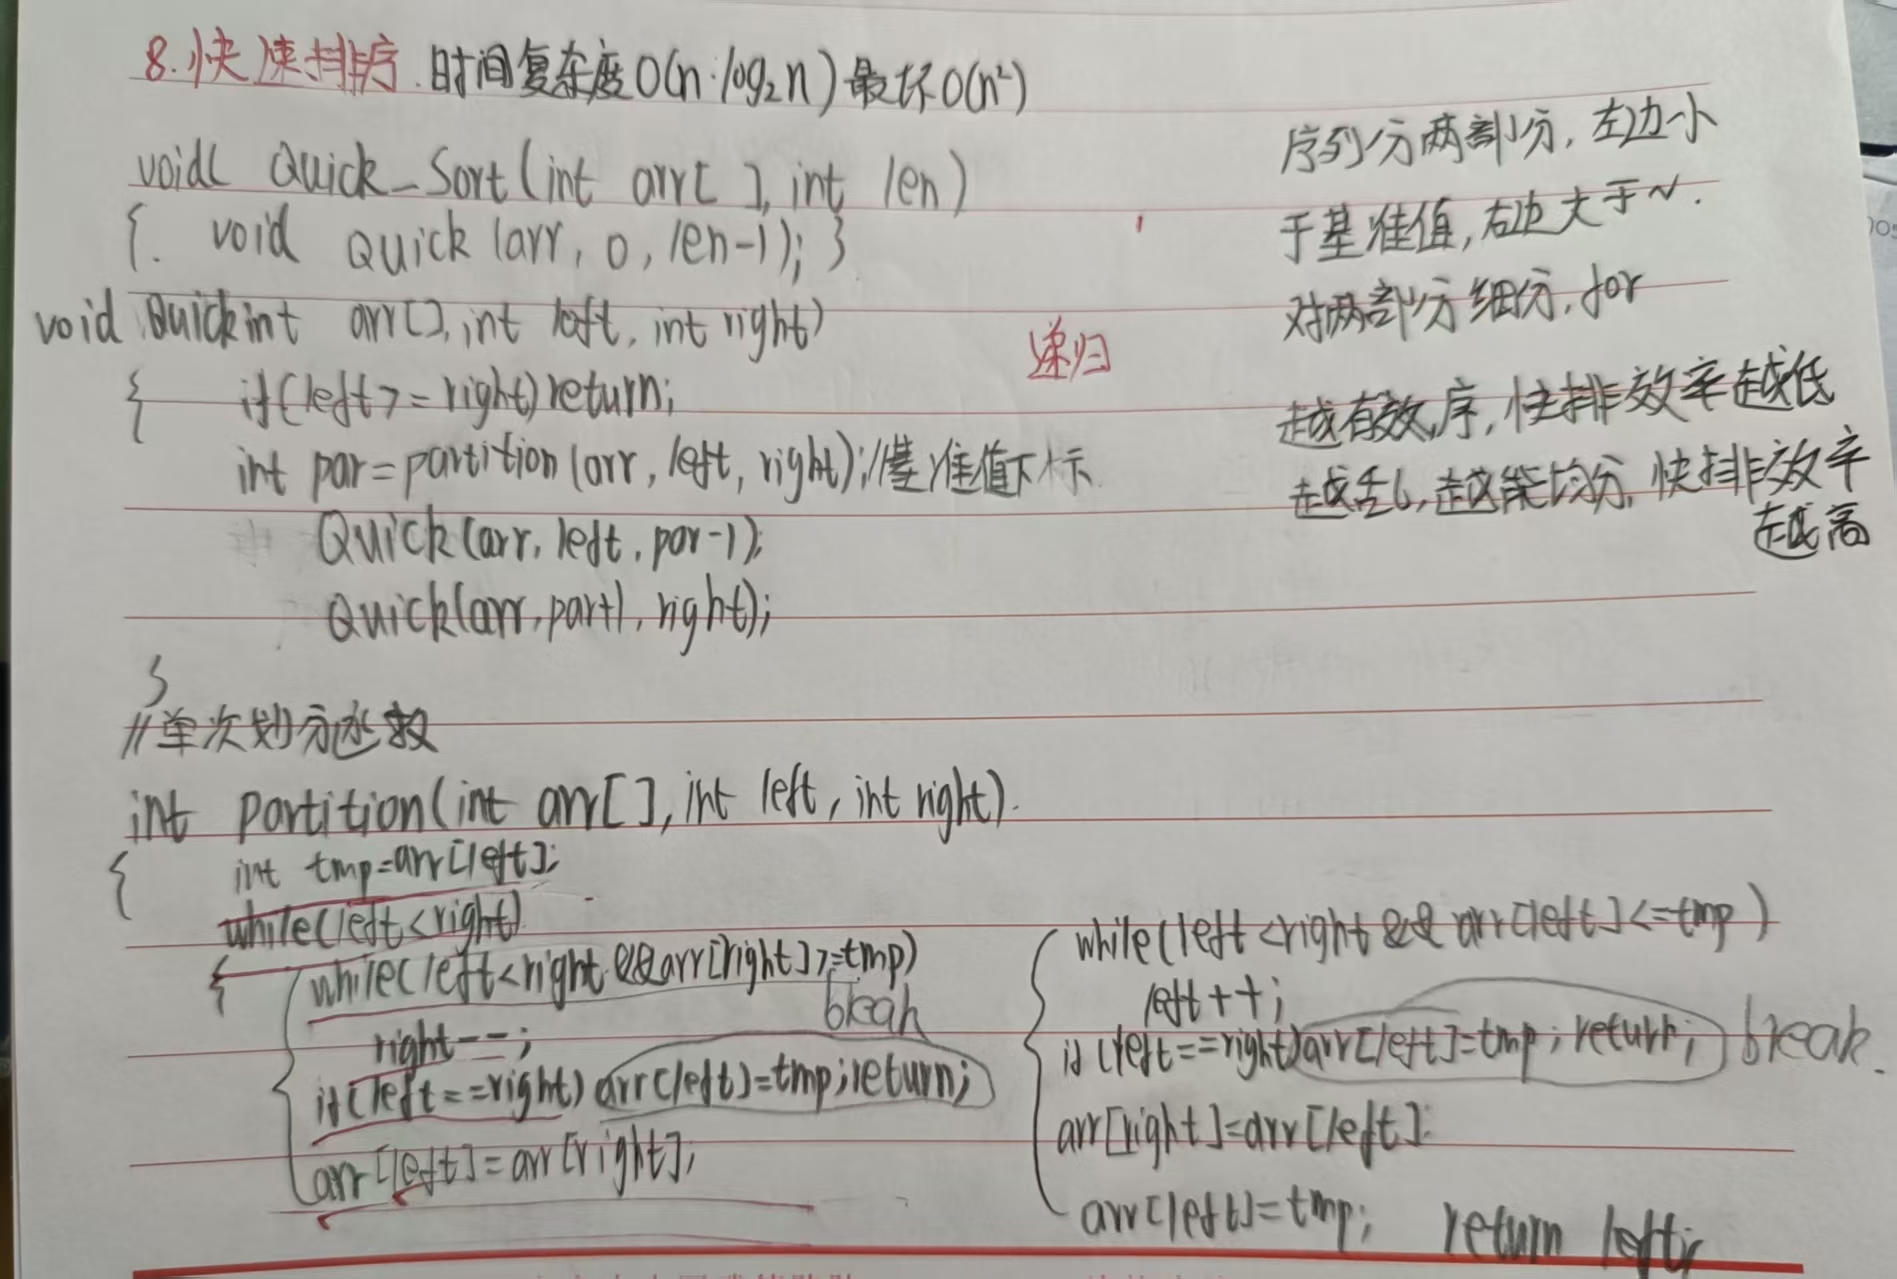 8.快速排序.时间复杂度O(n·log₂n)最坏O(n²)
void Quick_Sort(int arr[ ],int len)
{. void Quick(arr, 0, len-1); }
void Quick int arr[],int left, int right)
递归
{ if(left>=right)return;
int par=partition(arr, left, right);//基准值下标
Quick(arr, left, par-1);
Quick(arr, par+1, right);
}
序列分两部分,左边小
于基准值,右边大于~.
对两部分细分,for
越有序,快排效率越低
越乱,越能均分,快排效率
越高
//单次划分函数
int partition(int arr[ ],int left, int right).
{ int tmp=arr[left];
while(left<right)
{ while(left<right &&arr[right]>=tmp)
right--; break
if(left==right) arr[left]=tmp;return;
arr[left]=arr[right];
while(left<right && arr[left]<=tmp)
left++;
if(left==right)arr[left]=tmp;return; break.
arr[right]=arr[left];
arr[left]=tmp; return left;